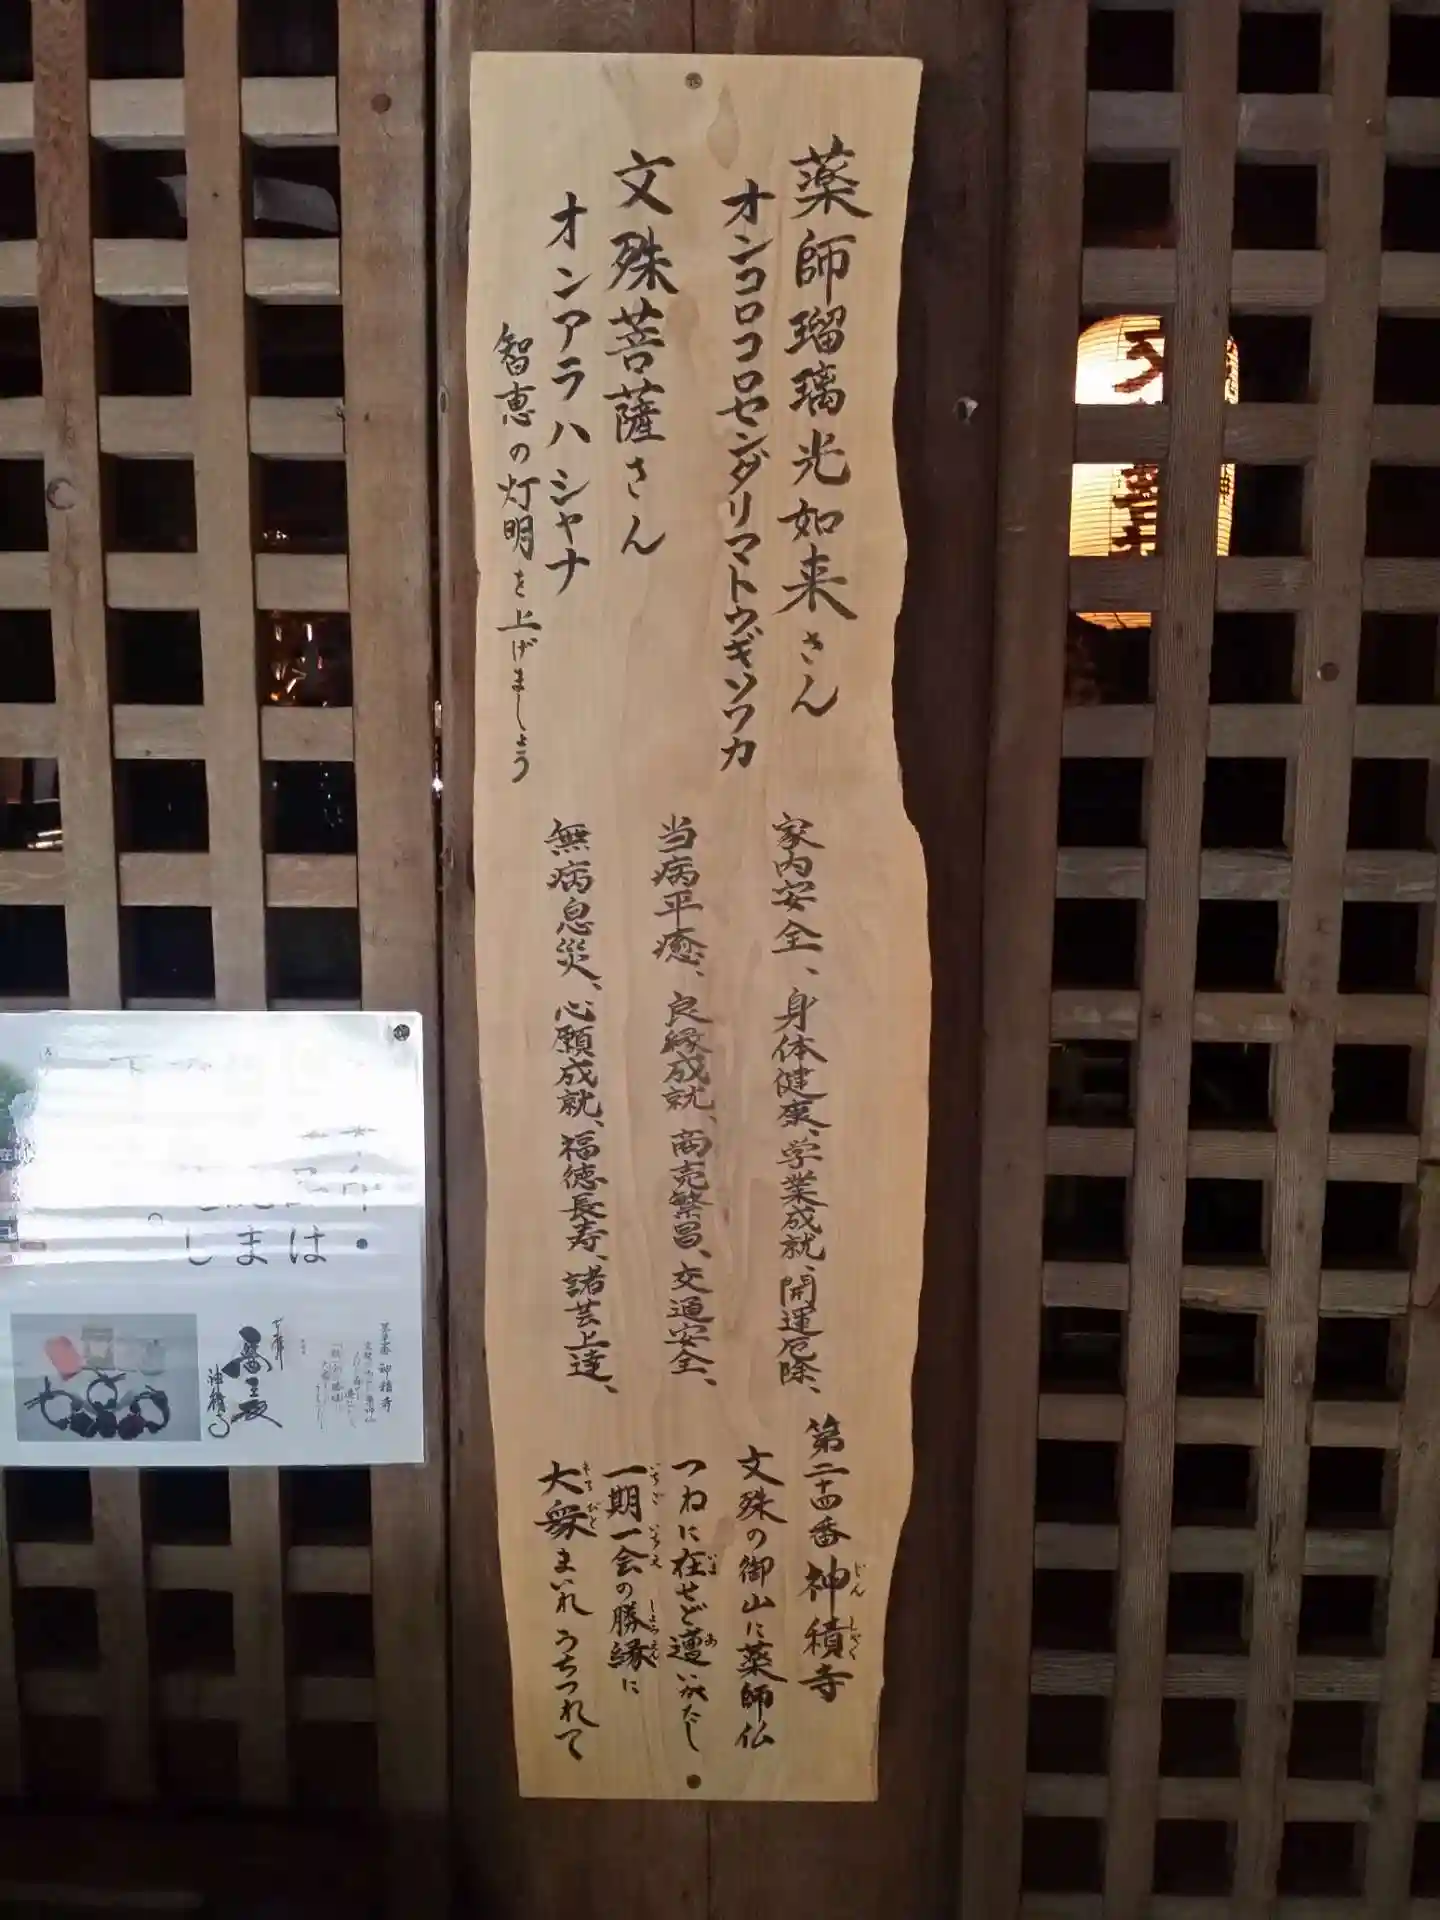 薬師瑠璃光如来さん
オンコロコロセンダリマトウギソワカ
文殊菩薩さん
オンアラハシャナ
智恵の灯明を上げましょう
家内安全、身体健康、学業成就、開運厄除、
当病平癒、良縁成就、商売繁昌、交通安全、
無病息災、心願成就、福徳長寿、諸芸上達、
第二十四番 神積寺
じんしゃく
文殊の御山に薬師仏
つねに在せど遭いがたし
いま
あ
一期一会の勝縁に
いちごいちえ
しょうえん
大衆まいれうちつれて
もろびと
はまし
神積寺